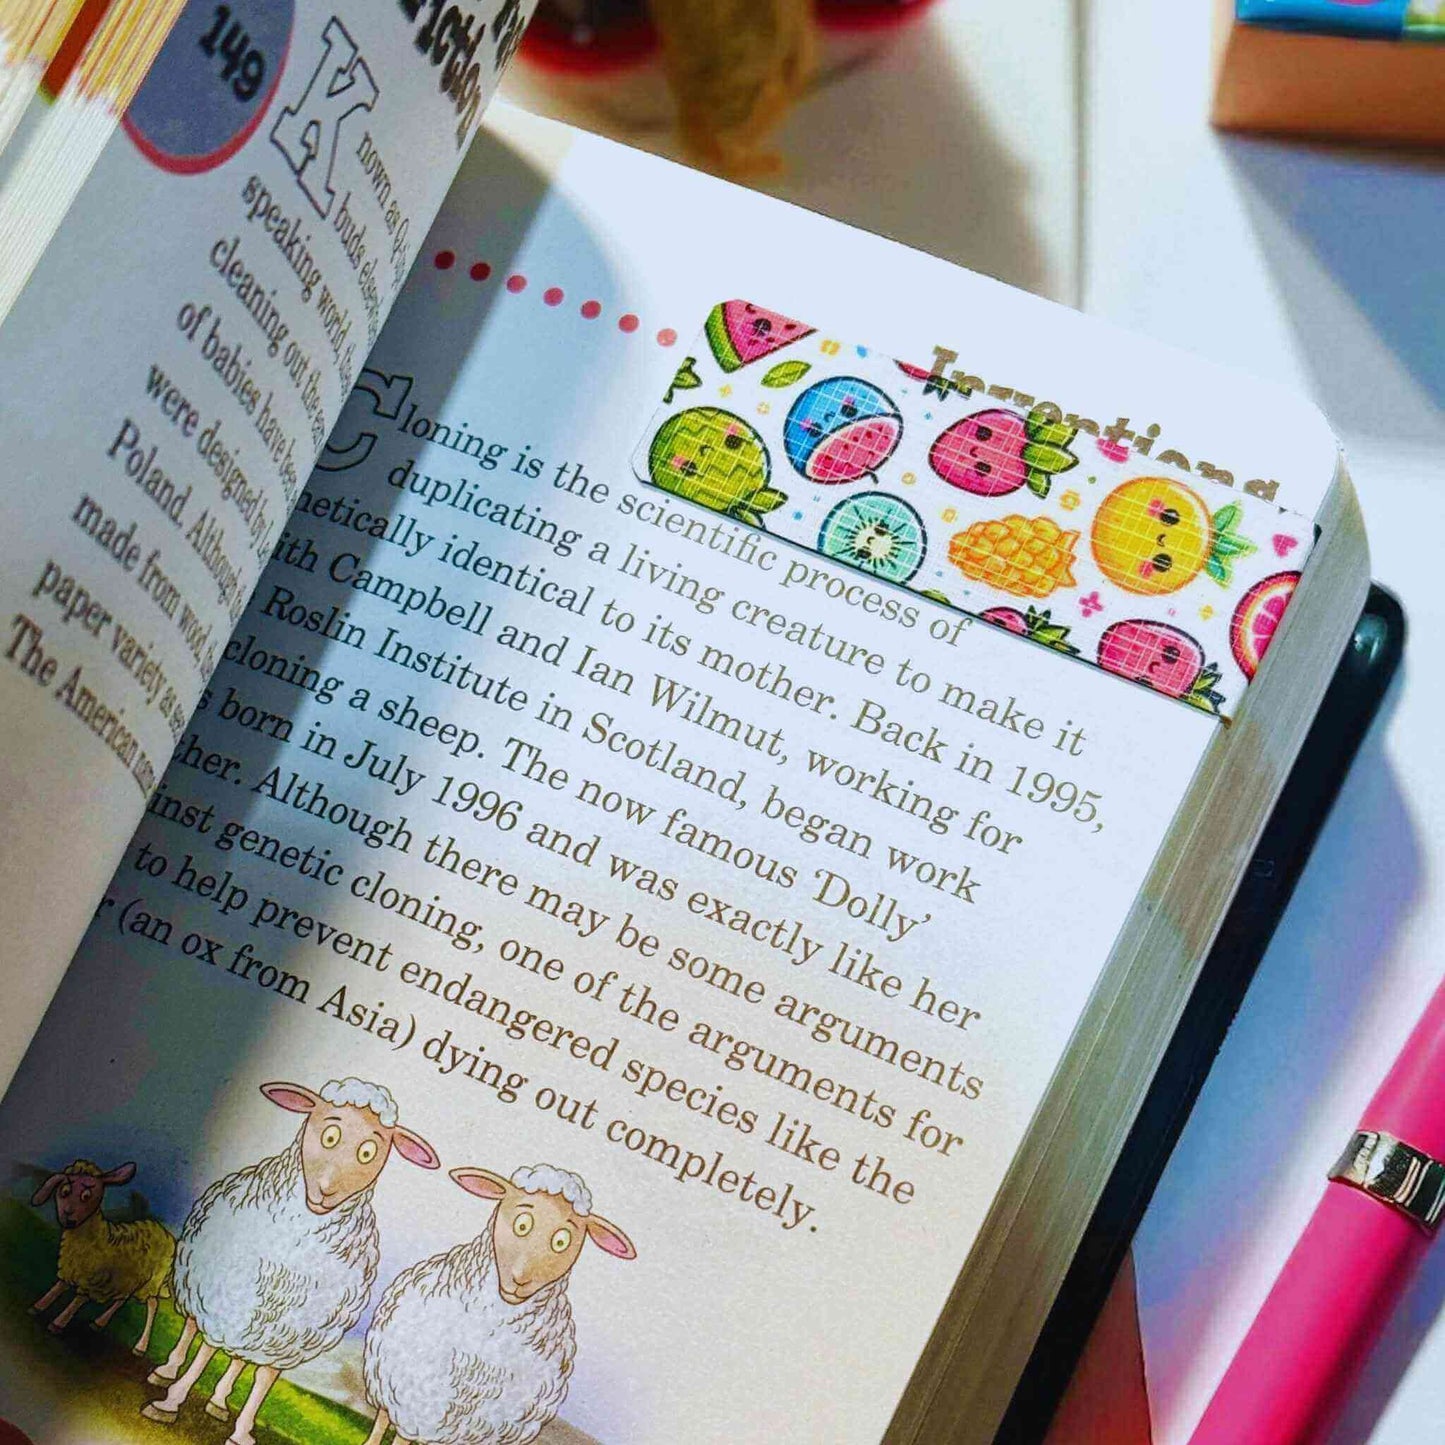 149
Known as Q-
buds elsew
speaking world, the
cleaning out the ear
of babies have been
were designed by Le
Poland. Although
made from wood,
paper variety as
The American
Inventions
Cloning is the scientific process of
duplicating a living creature to make it
netically identical to its mother. Back in 1995,
ith Campbell and Ian Wilmut, working for
Roslin Institute in Scotland, began work
cloning a sheep. The now famous ‘Dolly’
s born in July 1996 and was exactly like her
ther. Although there may be some arguments
inst genetic cloning, one of the arguments for
to help prevent endangered species like the
r (an ox from Asia) dying out completely.